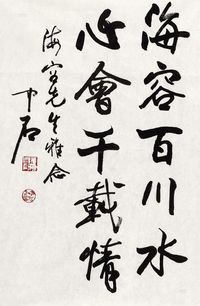 海容百川水
心會千載情
海容先生雅念
中石